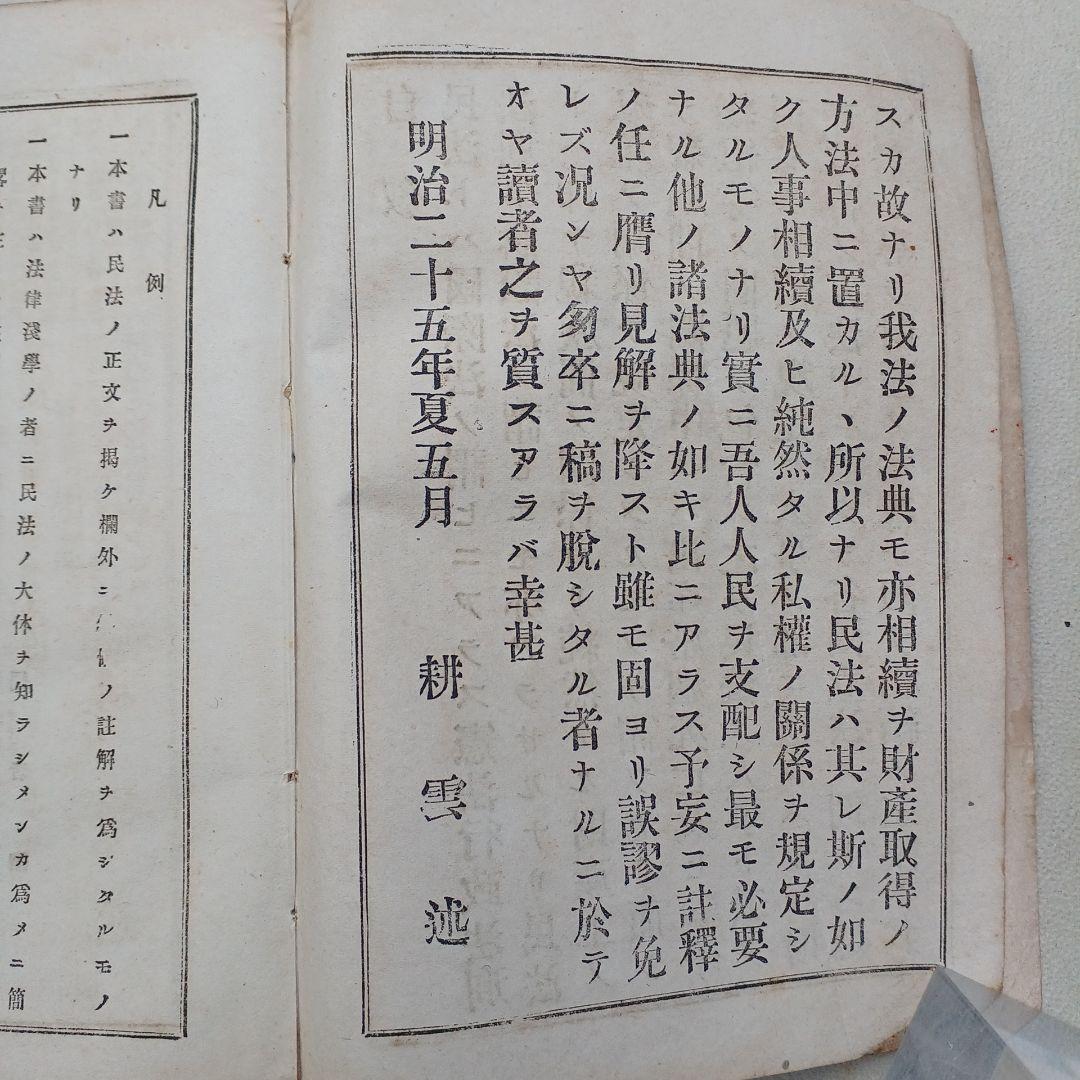 スカ故ナリ我法ノ法典モ亦相續ヲ財產取得ノ
方法中ニ置カルヽ所以ナリ民法ハ其レ斯ノ如
ク人事相續及ヒ純然タル私權ノ關係ヲ規定シ
タルモノナリ實ニ吾人人民ヲ支配シ最モ必要
ナル他ノ諸法典ノ如キ比ニアラス予妄ニ註釋
ノ任ニ膺リ見解ヲ降スト雖モ固ヨリ誤謬ヲ免
レズ況ンヤ匆卒ニ稿ヲ脫シタル者ナルニ於テ
オヤ讀者之ヲ質スアラバ幸甚
明治二十五年夏五月 耕雲述
凡例
一本書ハ民法ノ正文ヲ揭ケ欄外ニ ノ註解ヲ爲シタルモノ
ナリ
一本書ハ法律淺學ノ者ニ民法ノ大体ヲ知ラシメンカ爲メニ簡